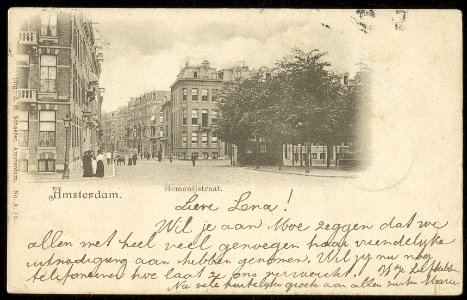 Uitg. J. H. Schaefer, Amsterdam. No. A 12.
Amsterdam.
Hemonijstraat.
Lieve Lena!
Wil je aan Moe zeggen dat we
allen met heel veel genoegen haar vriendelijke
uitnodiging aan hebben genomen. Wil jij nu nog
telefoneeren hoe laat ze ons verwacht.
Na vele hartelijke groeten aan allen zuster Marie